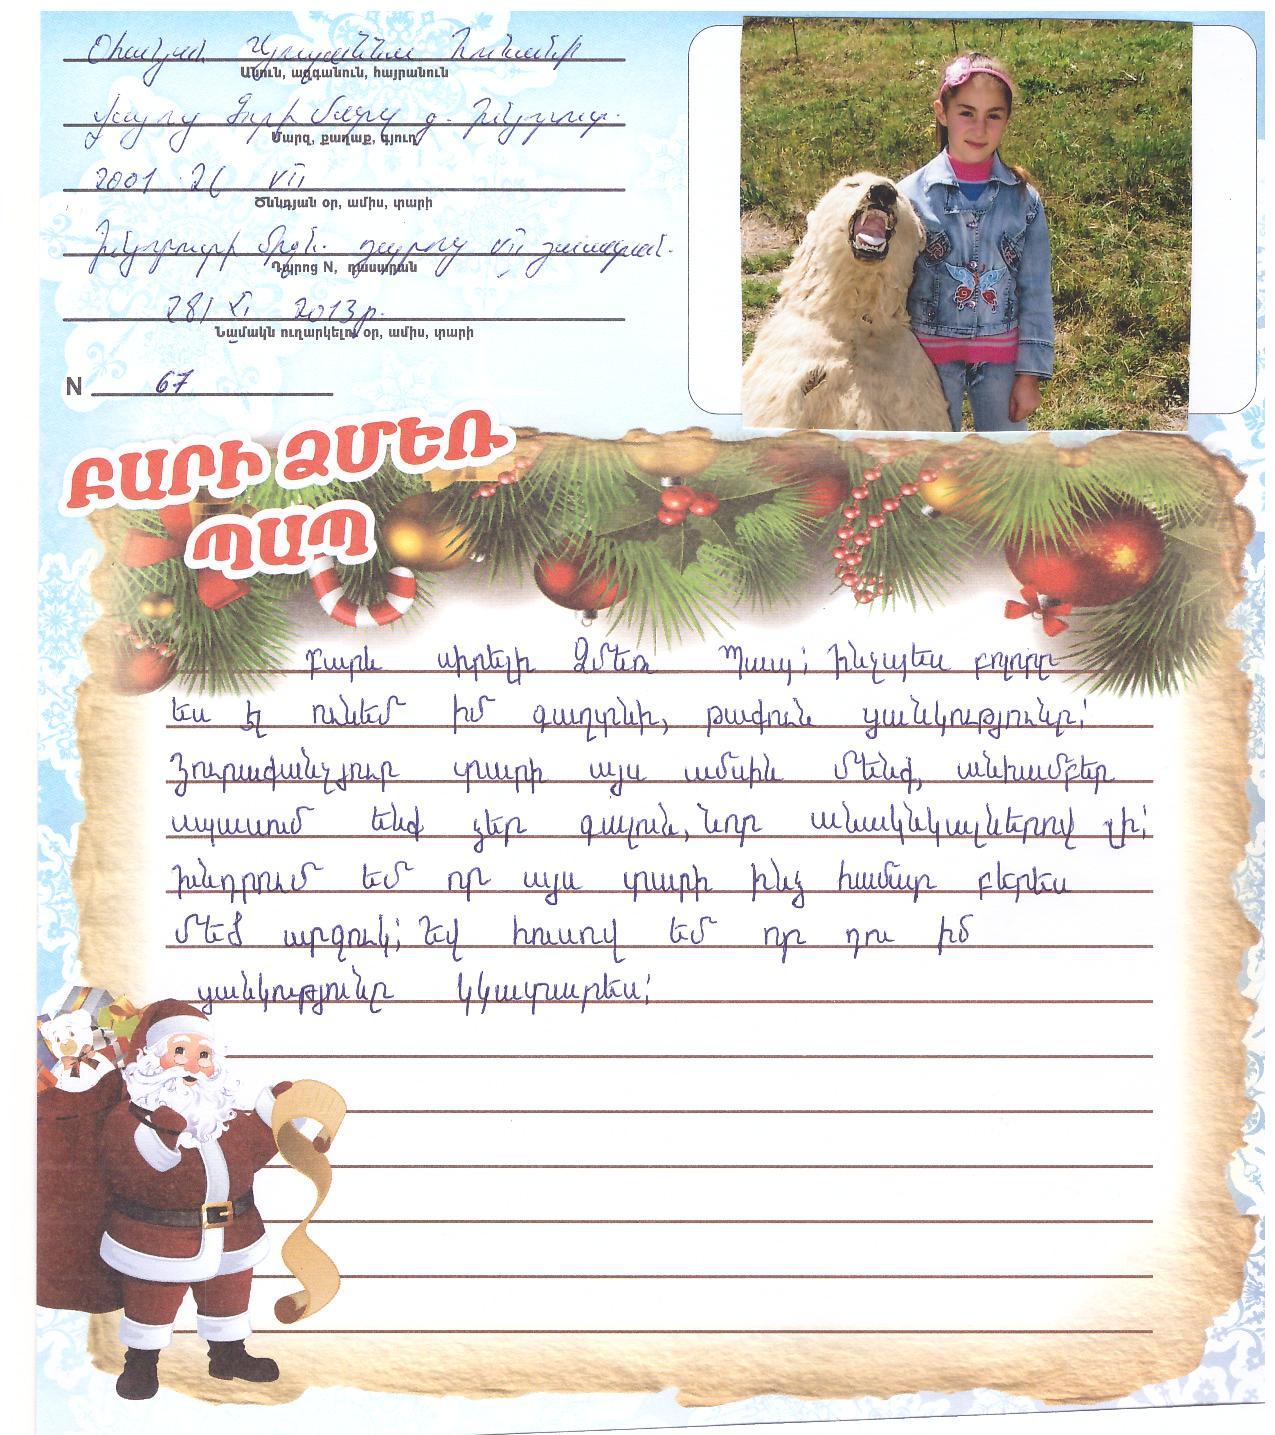 Օհանյան
Անուն, ազգանուն, հայրանուն
Վայոց Ձորի Մարզ գ. Խնդր
Մարզ, քաղաք, գյուղ
2001 26 VII
Ծննդյան օր, ամիս, տարի
միջն. դպրոց VII դասարան
Դպրոց N, դասարան
28/ XI 2013թ.
Նամակն ուղարկելու օր, ամիս, տարի
N 67
ԲԱՐԻ ՁՄԵՌ
ՊԱՊ
Բարև սիրելի Ձմեռ Պապ։ Ինչպես բոլորը
ես էլ ունեմ իմ գաղտնի, թաքուն ցանկությունը։
Յուրաքանչյուր տարի այս ամսին մենք, անհամբեր
սպասում ենք ձեր գալուն, նոր անակնկալներով լի։
Խնդրում եմ որ այս տարի ինձ համար բերես
մեծ արջուկ։ Եվ հուսով եմ որ դու իմ
ցանկությունը կկատարես։